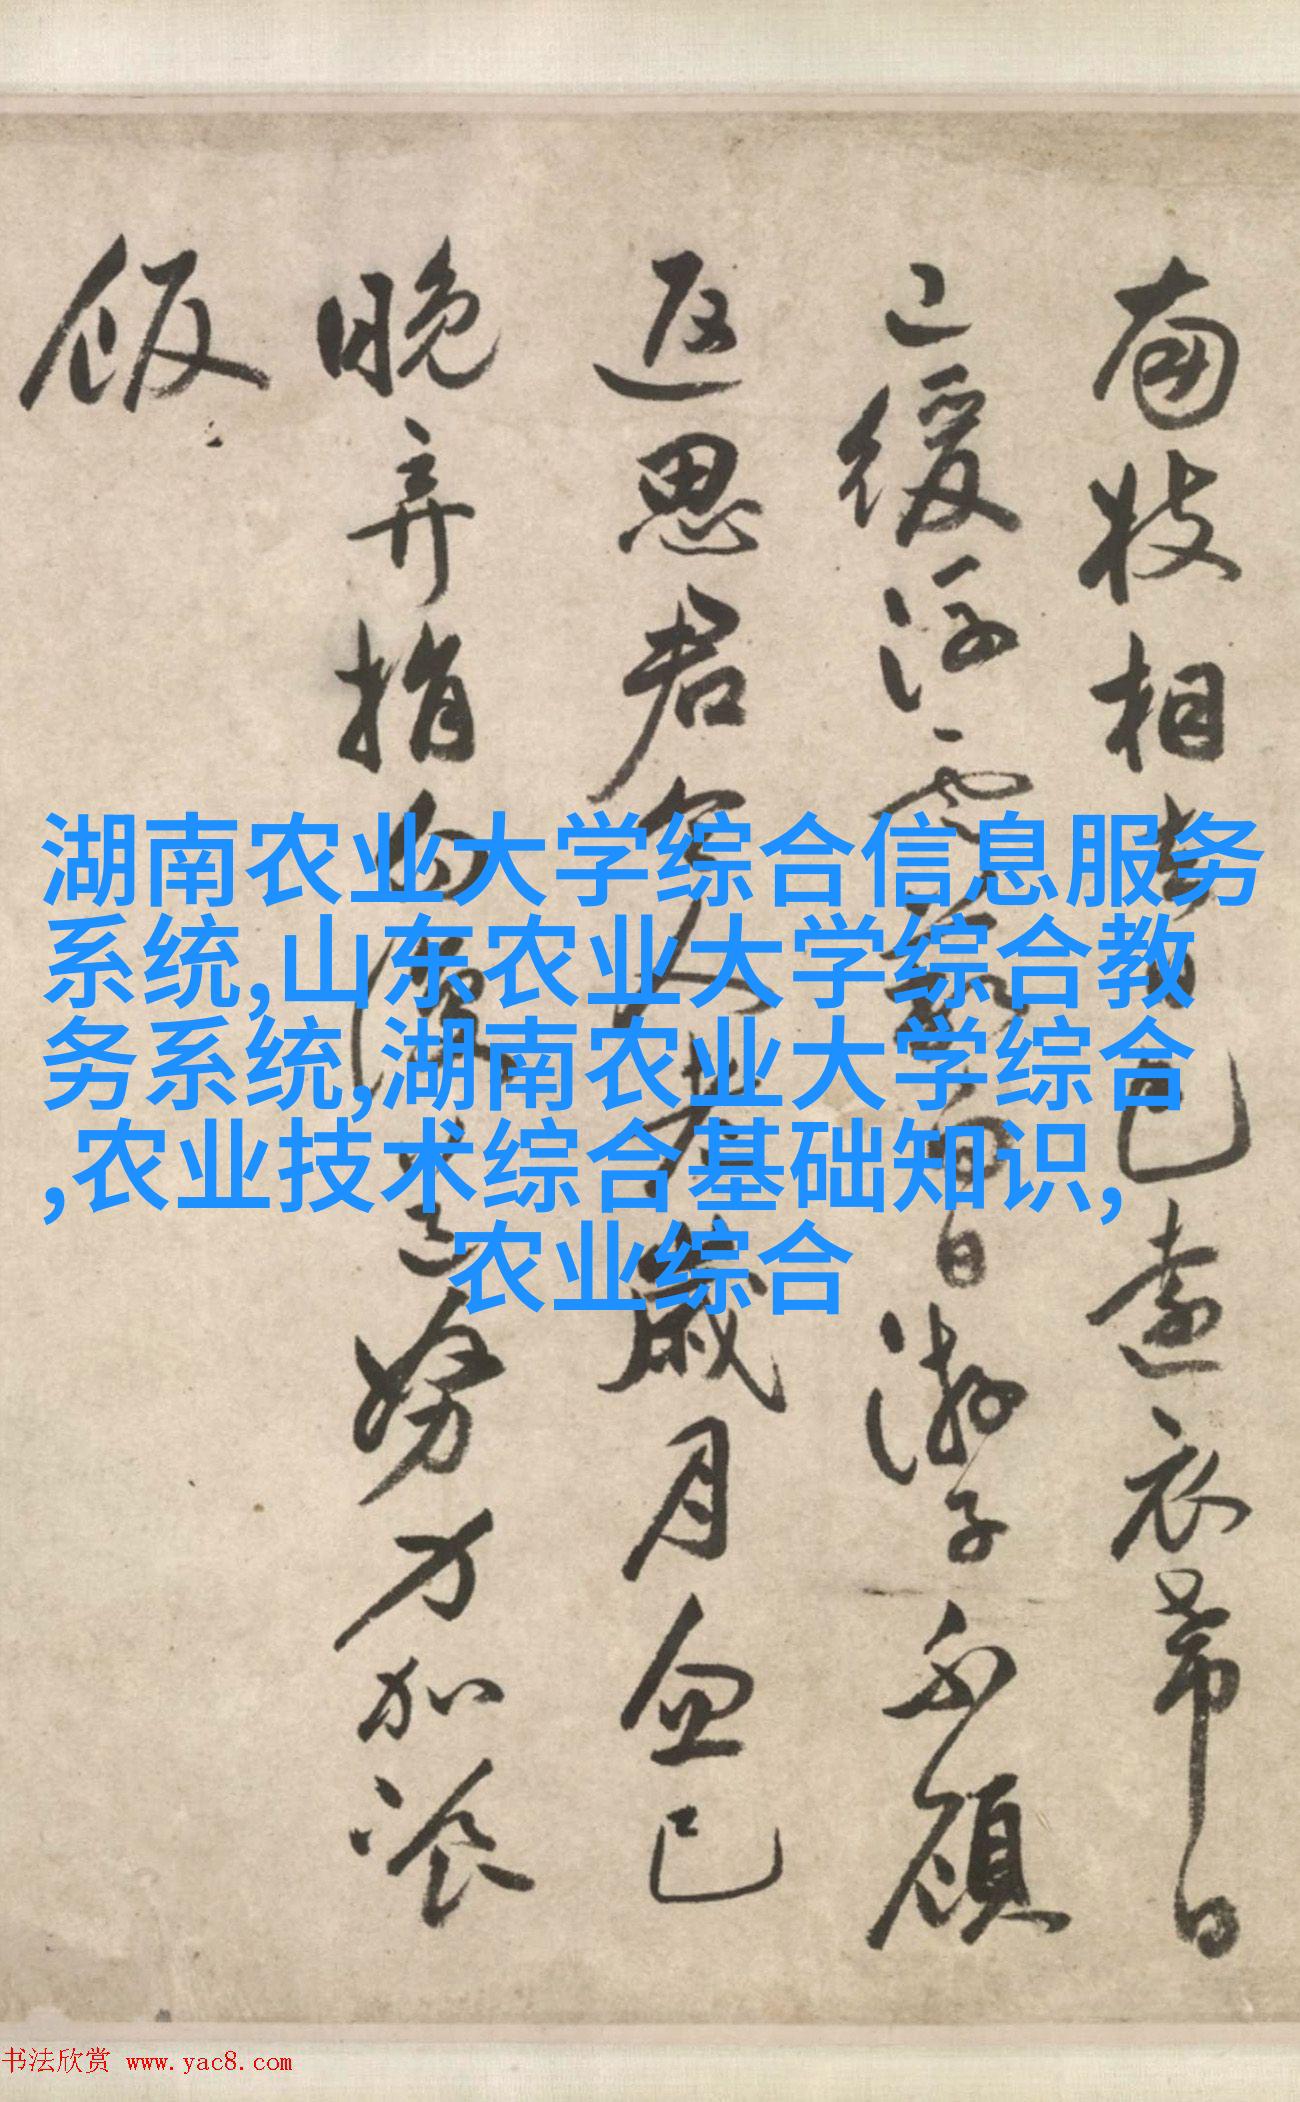 南枝相去日已遠衣帶日
已緩浮雲蔽白日游子不顧
返思君令人老歲月忽已
晚弃捐勿復道努力加飡
飯
湖南农业大学综合信息服务
系统,山东农业大学综合教
务系统,湖南农业大学综合
,农业技术综合基础知识,
农业综合
书法欣赏 www.yac8.com